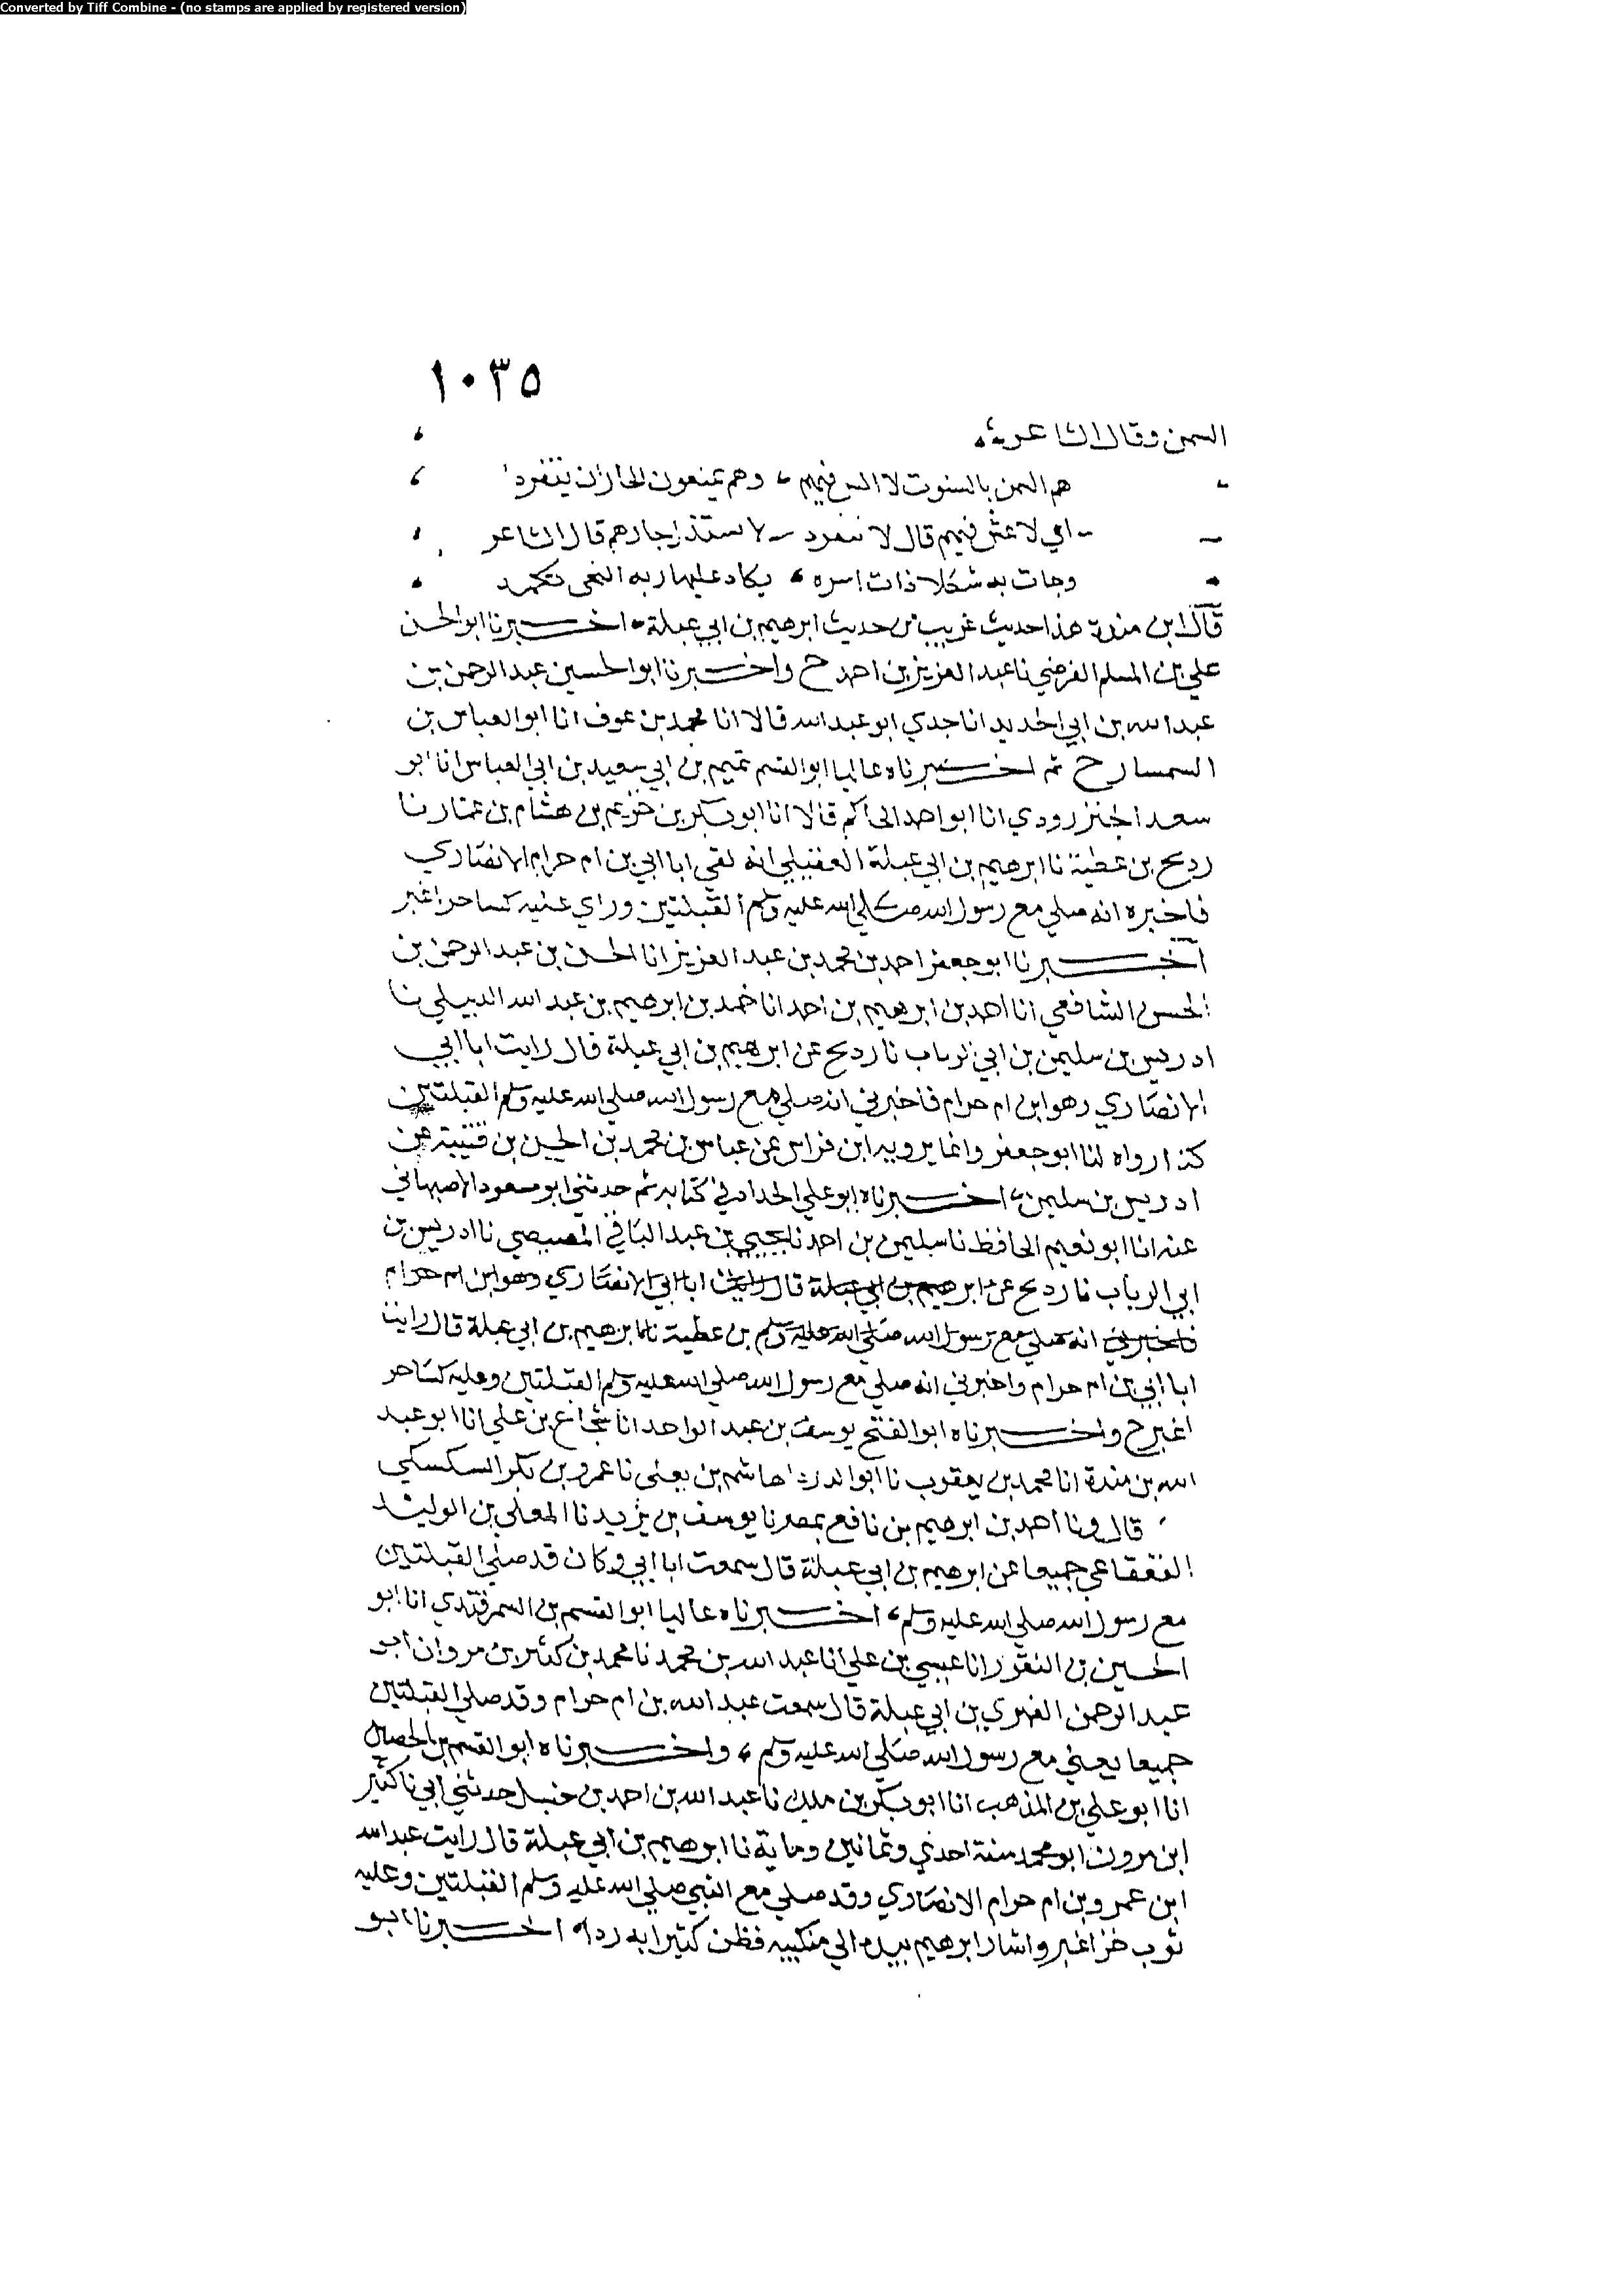 Converted by Tiff Combine - (no stamps are applied by registered version)
١٠٣٥
السمن وقال الشاعر
هم السمن بالسنوت لا الس فيهم وهم يمنعون الجار ان يتفردا
اي لا غش فيهم قال لا تتفرد لا ستذل جارهم قال الشاعر
وجات به شكلا ذات اسره يكاد عليها ربه النحى تكمد
قال ابن مندة هذا حديث غريب من حديث ابرهيم بن ابي عبلة اخبرنا ابو الحسن
علي بن المسلم الفرضي نا عبد العزيز بن احمد ح واخبرنا ابو الحسين عبد الرحمن بن
عبد الله بن ابي الحديد انا جدي ابو عبد الله قالا انا محمد بن عوف انا ابو العباس بن
السمسار ح ثم اخبرناه عاليا ابو القسم تميم بن ابي سعيد بن ابي العباس انا ابو
سعد الجنزرودي انا ابو احمد الحاكم قالا انا ابو بكر بن خزيم بن هشام بن عمار نا
رديح بن عطية نا ابرهيم بن ابي عبلة العقيلي انه لقي ابا ابي بن ام حرام الانصاري
فاخبره انه صلي مع رسول الله صلي الله عليه وسلم القبلتين وراي عليه كسا خز اغبر
اخبرنا ابو جعفر احمد بن محمد بن عبد العزيز انا الحسن بن عبد الرحمن بن
الحسن الشافعي انا احمد بن ابرهيم بن احمد انا محمد بن ابرهيم بن عبد الله الديبلي نا
ادريس بن سليمن بن ابي الرباب نا رديح عن ابرهيم بن ابي عبلة قال رايت ابا ابي
الانصاري وهو ابن ام حرام فاخبرني انه صلي مع رسول الله صلي الله عليه وسلم القبلتين
كذا رواه لنا ابو جعفر وانما يرويه ابن فراس عن عباس بن محمد بن الحسن بن قتيبة عن
ادريس بن سليمن اخبرناه ابو علي الحداد في كتابه ثم حدثني ابو مسعود الاصبهاني
عنه انا ابو نعيم الحافظ نا سليمن بن احمد نا يحيي بن عبد الباقي المصيصي نا ادريس بن
ابي الرباب نا رديح عن ابرهيم بن ابي عبلة قال رايت ابا ابي الانصاري وهو ابن ام حرام
فاخبرني انه صلي مع رسول الله صلي الله عليه وسلم بن عطية نا ابرهيم بن ابي عبلة قال رايت
ابا ابي بن ام حرام واخبرني انه صلي مع رسول الله صلي الله عليه وسلم القبلتين وعليه كسا خز
اغبر ح واخبرناه ابو الفتح يوسف بن عبد الواحد انا شجاع بن علي انا ابو عبد
الله بن مندة انا محمد بن يعقوب نا ابو الدردا هاشم بن يعلى نا عمرو بن بكر السكسكي
قال ونا احمد بن ابرهيم بن نافع بمصر نا يوسف بن يزيد نا المعلي بن الوليد
القعقاعي جميعا عن ابرهيم بن ابي عبلة قال سمعت ابا ابي وكان قد صلي القبلتين
مع رسول الله صلي الله عليه وسلم اخبرناه عاليا ابو القسم بن السمرقندي انا ابو
الحسين بن النقور انا عيسي بن علي انا عبد الله بن محمد نا محمد بن كثير بن مروان ابو
عبد الرحمن الفهري بن ابي عبلة قال سمعت عبد الله بن ام حرام وقد صلي القبلتين
جميعا يعني مع رسول الله صلي الله عليه وسلم واخبرناه ابو القسم بن الحصين
انا ابو علي بن المذهب انا ابو بكر بن ملك نا عبد الله بن احمد بن حنبل حدثني ابي نا كثير
ابن مرون ابو محمد سنة احدي وثمانين وماية نا ابرهيم بن ابي عبلة قال رايت عبد الله
ابن عمرو بن ام حرام الانصاري وقد صلي مع النبي صلي الله عليه وسلم القبلتين وعليه
ثوب خز اغبر واشار ابرهيم بيده الي منكبيه فظن كثير انه ردا اخبرنا ابو